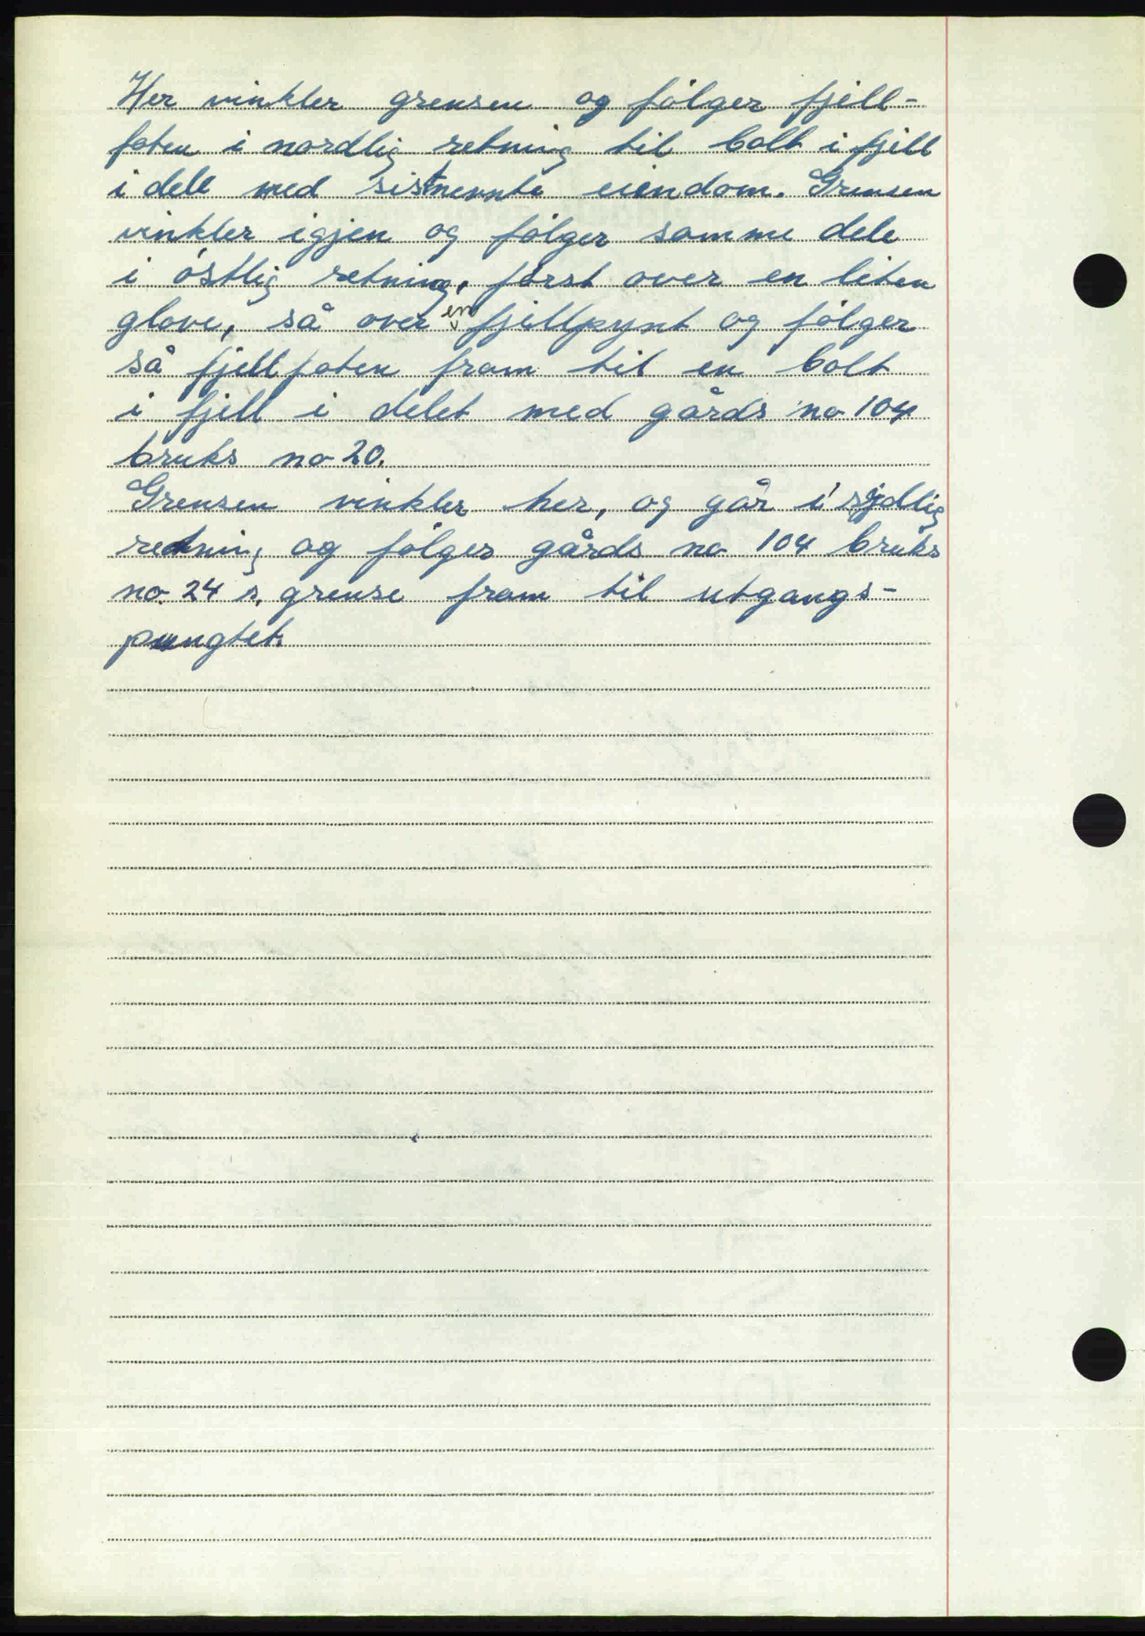 Her vinkler grensen og følger fjell-
foten i nordlig retning til bolt i fjell
i dele med sistnevnte eiendom. Grensen
vinkler igjen og følger samme dele
i østlig retning, først over en liten
glove, så over en fjellpynt og følger
så fjellfoten fram til en bolt
i fjell i delet med gårds no 104
bruks no 20.
Grensen vinkler her, og går i sydlig
retning og følger gårds no 104 bruks
no. 24 s. grense fram til utgangs-
pungtet.